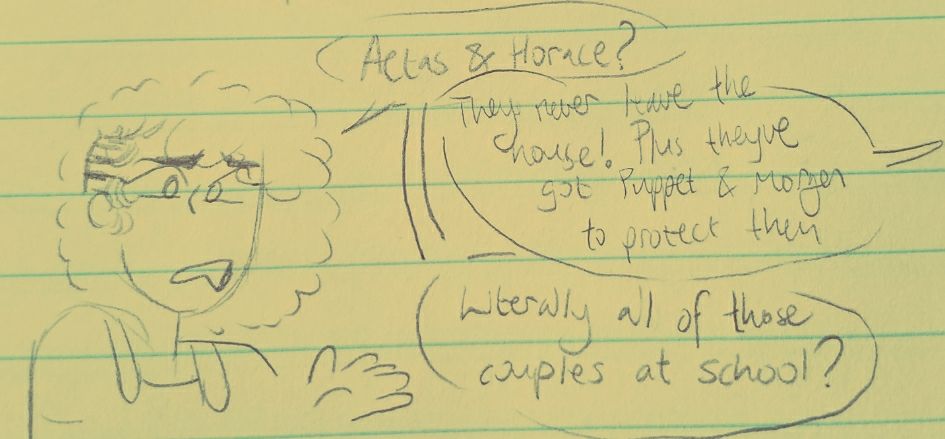 Aetas & Horace?
They never leave the
house! Plus theyve
got Puppet & Morgen
to protect them
Literally all of those
couples at school?